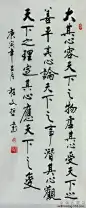 大其心容天下之物虚其心受天下之
善平其心论天下之言潜其心观
天下之理定其心应天下之变
庚寅年